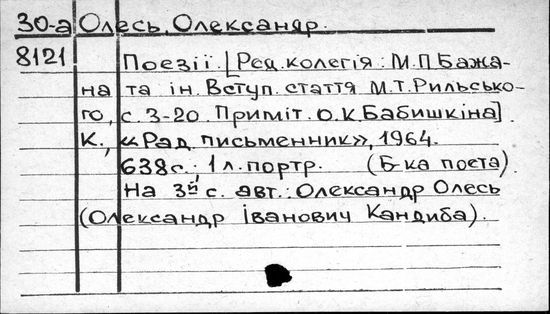 30-а Олесь, Олександр.
8121 Поезії. [Ред. колегія: М.П. Бажа-
на та ін. Вступ. стаття М.Т. Рильсько-
го, с. 3-20. Приміт. О.К. Бабишкіна]
К., «Рад. письменник», 1964.
638 с.; 1 л. портр. (Б-ка поета).
На 3й с. авт.: Олександр Олесь
(Олександр Іванович Кандиба).